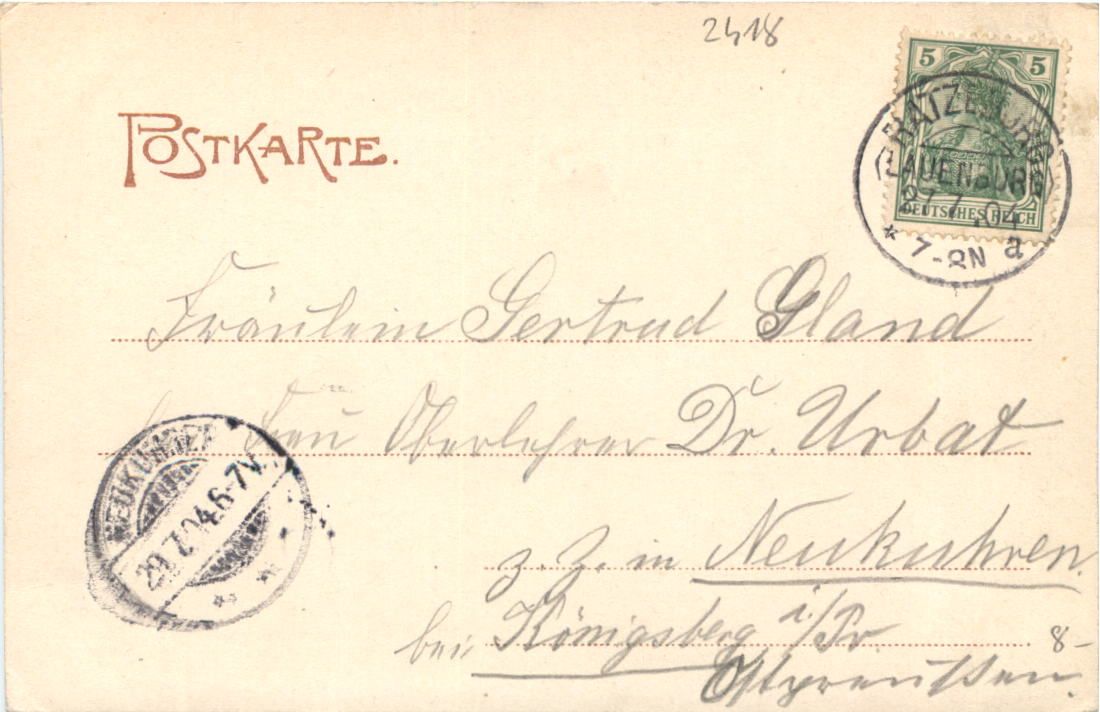 2418
5 5
DEUTSCHES REICH
RATZEBURG
(LAUENBURG)
27.7.04
* 7-8N a
POSTKARTE.
Fräulein Gertrud Gland
Frau Oberlehrer Dr. Urbat
NEUKUHREN
29.7.04.6-7V.
z. Z. in Neukuhren.
bei Königsberg i/Pr
Ostpreussen.
8-